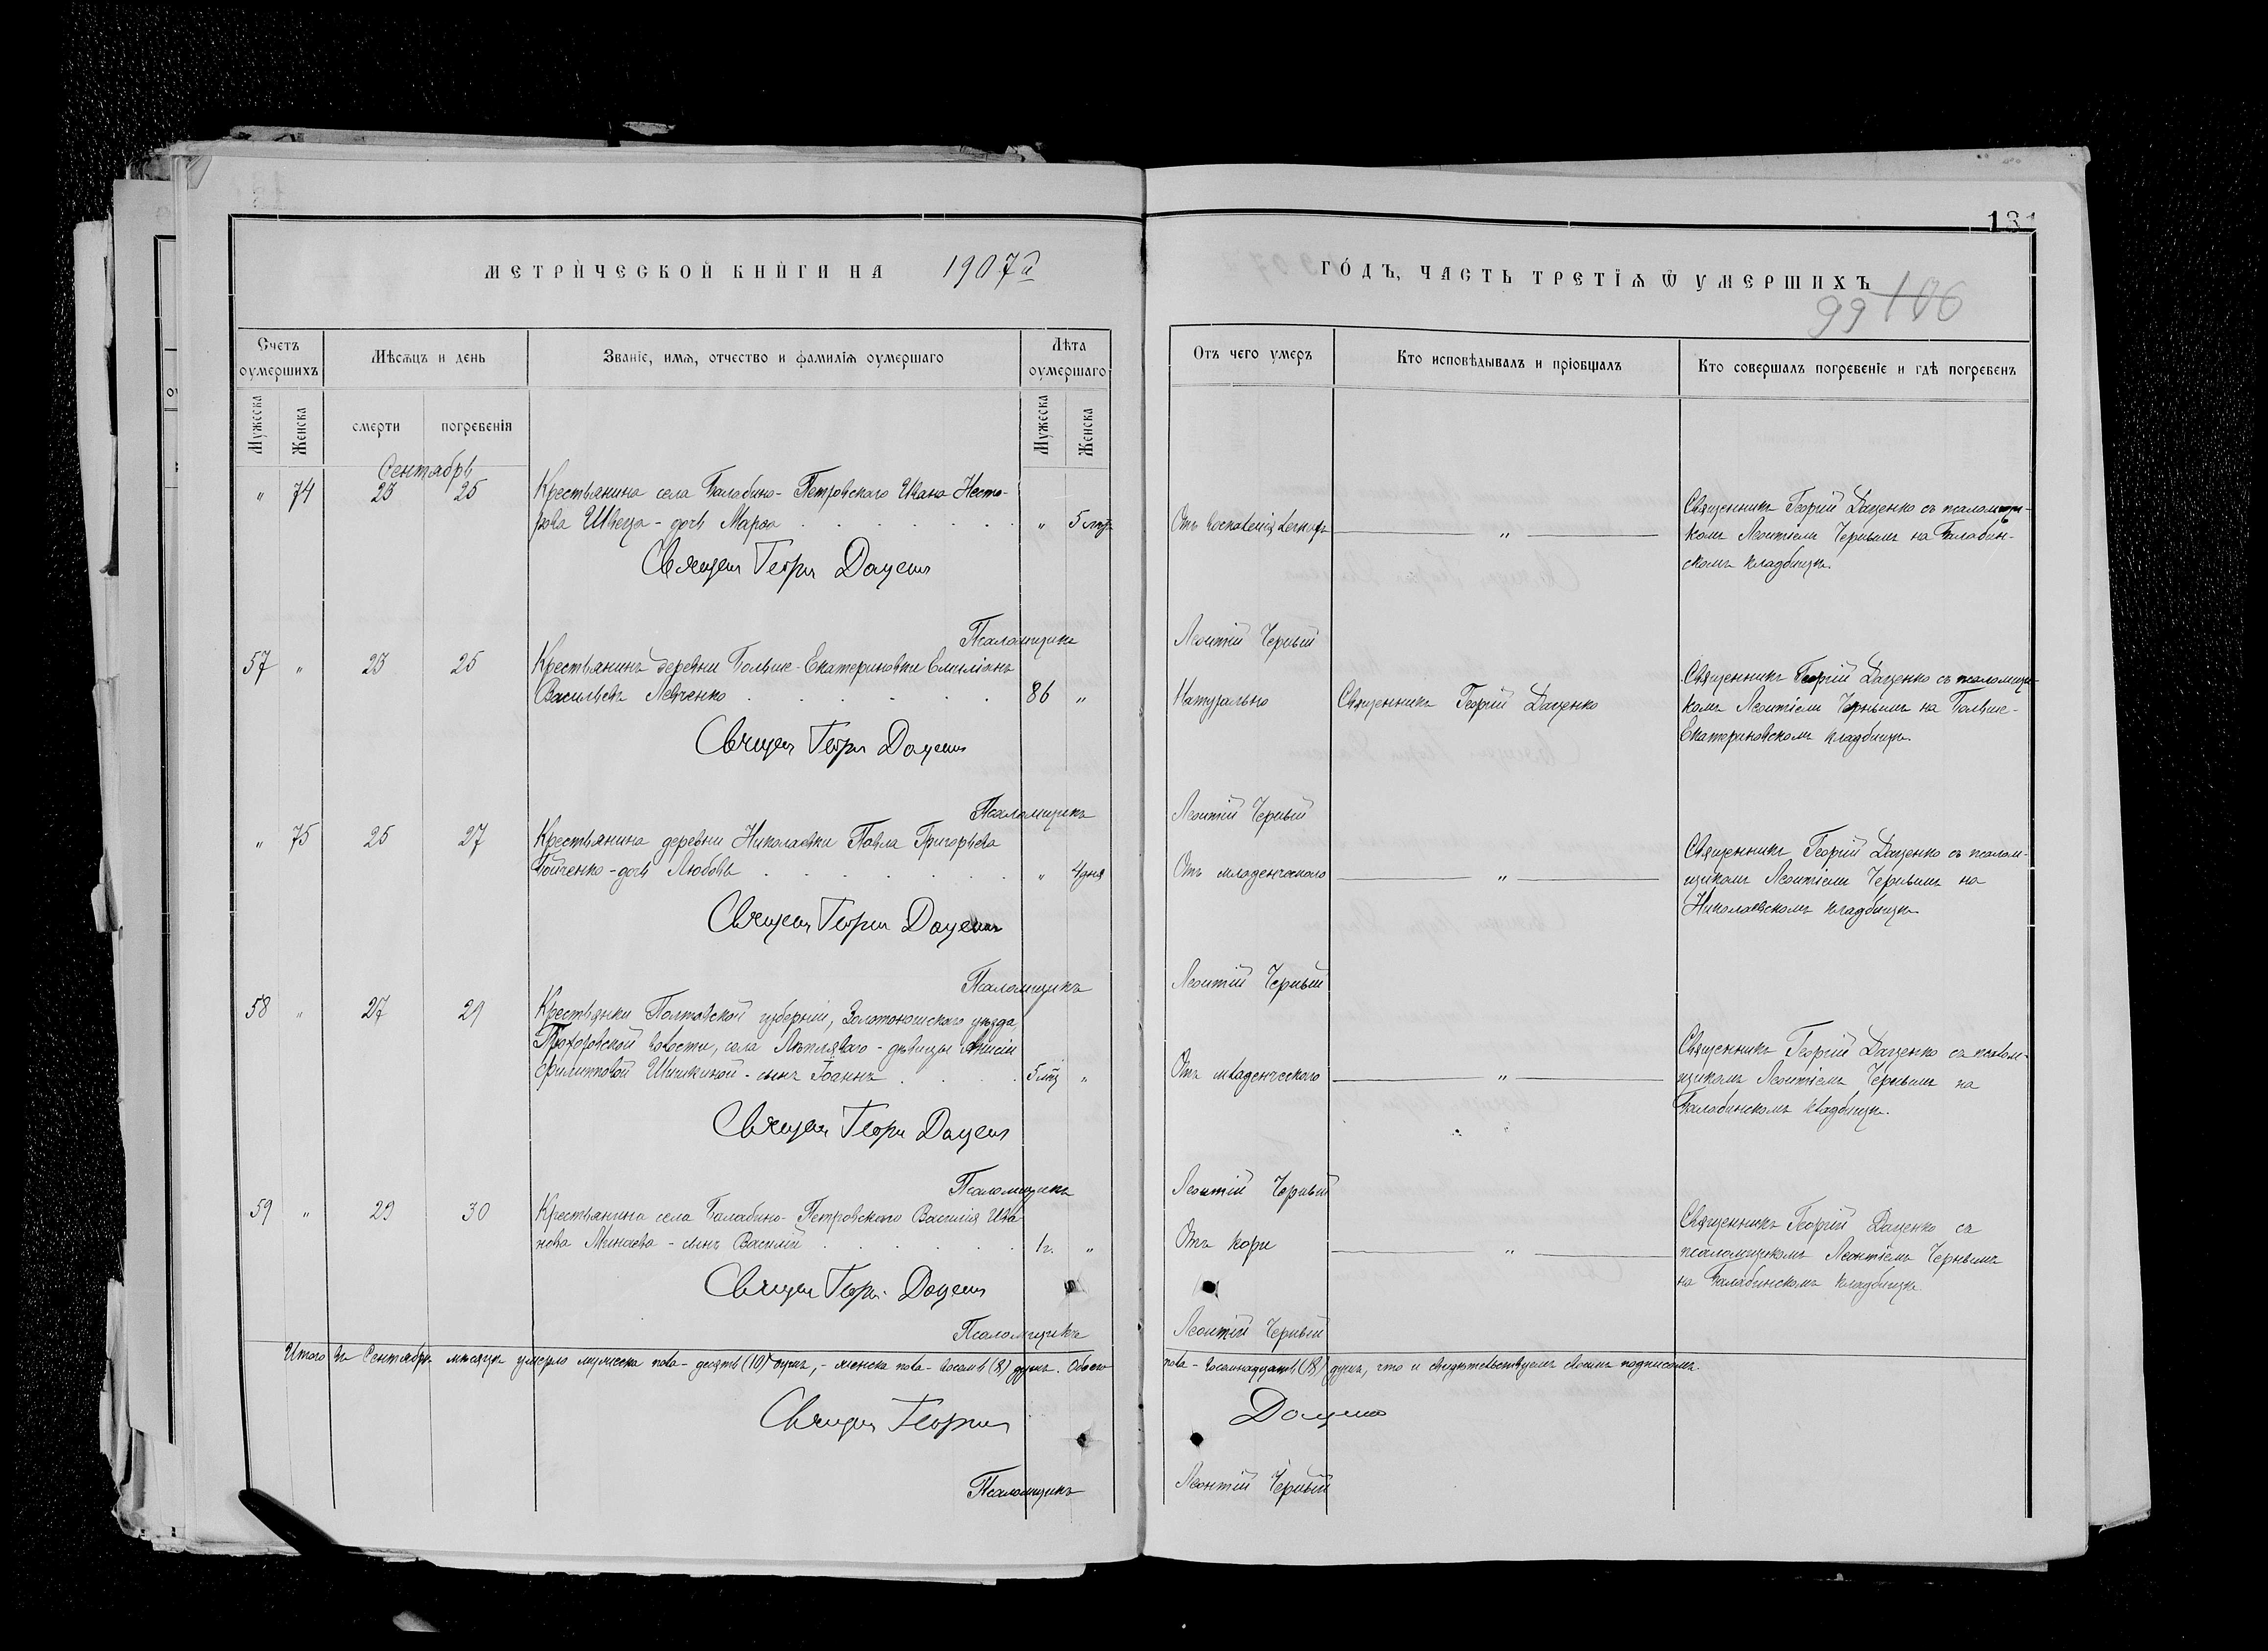 181
МЕТРИЧЕСКОЙ КНИГИ НА 1907й
ГОДЪ, ЧАСТЬ ТРЕТІѦ Ѿ УМЕРШИХЪ
99 106
Счетъ оумершихъ
Мѣсѧцъ и день
Званіе, имѧ, отчество и фамиліѧ оумершаго
Лѣта оумершаго
Отъ чего умеръ
Кто исповѣдывалъ и пріобщалъ
Кто совершалъ погребеніе и гдѣ погребенъ
Мужеска
Женска
смерти
погребенія
Мужеска
Женска
Сентябрь
" 74 23 25
Крестьянина села Балабино-Петровскаго Ивана Несто-
рова Швеца - дочь Марѳа " 5 лѣтъ
Отъ воспаленія легкихъ
"
Священникъ Георгій Даценко съ псаломщи-
комъ Леонтіемъ Чернымъ на Балабин-
скомъ кладбищѣ.
Священ Георгій Даценко
Псаломщикъ Леонтій Черный
57 " 23 25
Крестьянинъ деревни Больше-Екатериновки Емиліанъ
Васильевъ Левченко 86 "
Натурально
Священникъ Георгій Даценко
Священникъ Георгій Даценко съ псаломщи-
комъ Леонтіемъ Чернымъ на Больше-
Екатериновскомъ кладбищѣ.
Священ Георгій Даценко
Псаломщикъ Леонтій Черный
" 75 25 27
Крестьянина деревни Николаевки Павла Григорьева
Бойченко - дочь Любовь " 4 дня
Отъ младенческаго
"
Священникъ Георгій Даценко съ псалом-
щикомъ Леонтіемъ Чернымъ на
Николаевскомъ кладбищѣ.
Священ Георгій Даценко
Псаломщикъ Леонтій Черный
58 " 27 29
Крестьянки Полтавской губерніи, Золотоношскаго уѣзда,
Прохоровской волости, села Лѣпляваго - дѣвицы Анисіи
Филипповой Шишкиной - сынъ Іоаннъ 5 мѣц "
Отъ младенческаго
"
Священникъ Георгій Даценко съ псалом-
щикомъ Леонтіемъ Чернымъ на
Балабинскомъ кладбищѣ.
Священ Георгій Даценко
Псаломщикъ Леонтій Черный
59 " 29 30
Крестьянина села Балабино-Петровскаго Василія Ива-
нова Минаева - сынъ Василій 1 г. "
Отъ кори
"
Священникъ Георгій Даценко съ
псаломщикомъ Леонтіемъ Чернымъ
на Балабинскомъ кладбищѣ.
Священ Георгій Даценко
Псаломщикъ Леонтій Черный
Итого въ Сентябрѣ мѣсяцѣ умерло мужеска пола - десять (10) душъ, - женска пола - восемь (8) душъ. Обоего пола - восемнадцать (18) душъ, что и свидѣтельствуемъ своимъ подписомъ.
Священ Георгій Даценко
Псаломщикъ Леонтій Черный